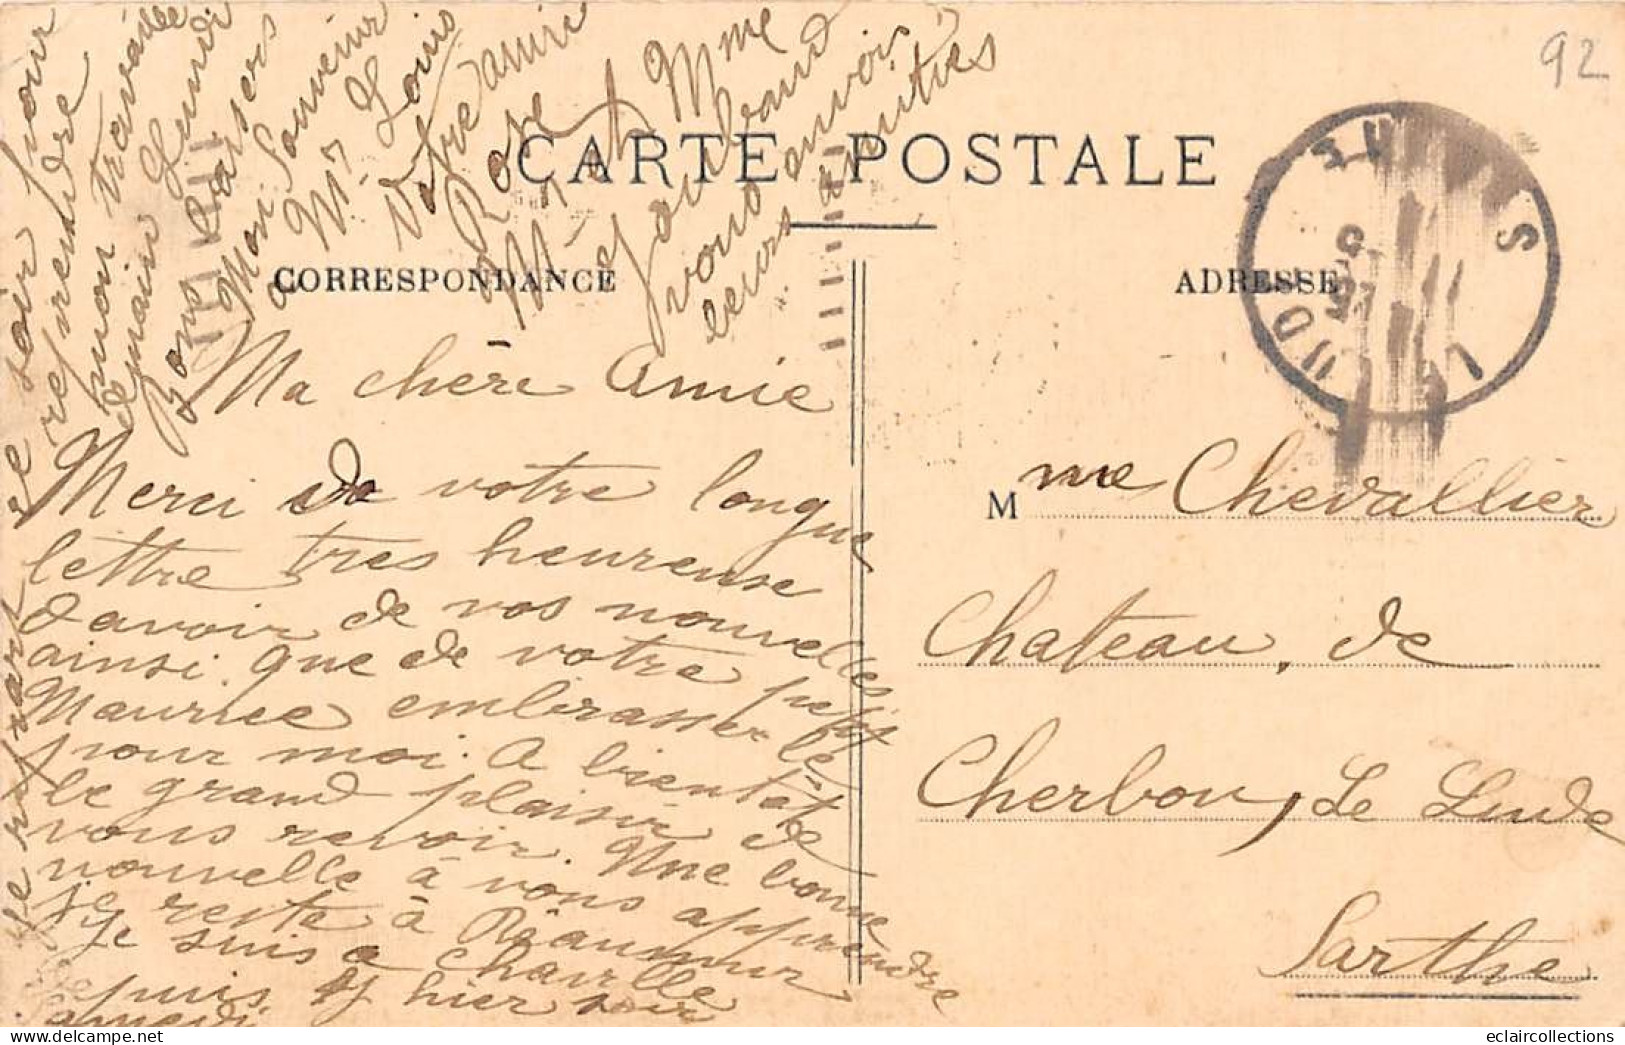 92
CARTE POSTALE
CORRESPONDANCE
ADRESSE
Ma chère Amie
Merci de votre longue
lettre tres heureuse
d'avoir de vos nouvelles
ainsi que de votre petit
Maurice embrasser le
pour moi. A bientôt
le grand plaisir de
vous revoir. Une bonne
nouvelle à vous apprendre
je reste à Réaumur
je suis a Chaville
depuis hier soir
samedi
je repars
ce soir pour
reprendre
mon travaille
demain Lundi
Bons Baisers
Mon Souvenir
a Mr Louis
Votre amie
Rose
Mr et Mme
Joulraud
vous envois
leurs amitiés
Mme Chevallier
Chateau de
Cherbon, Le Lude
Sarthe
eclaircollections
www.delcampe.net